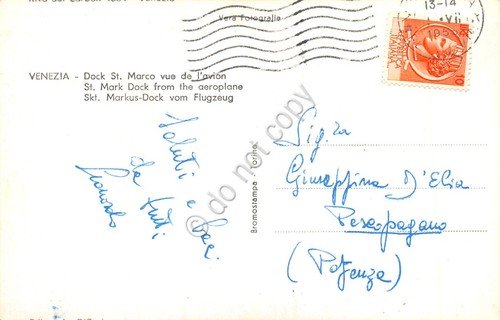 Vera Fotografia
13-14
VENEZIA - Dock St. Marco vue de l'avion
St. Mark Dock from the aeroplane
Skt. Markus-Dock vom Flugzeug
Saluti e baci
da tutti
Bromostampa - Torino
Sig.ra
Giuseppina D'Elia
Pescopagano
(Potenza)
do not copy